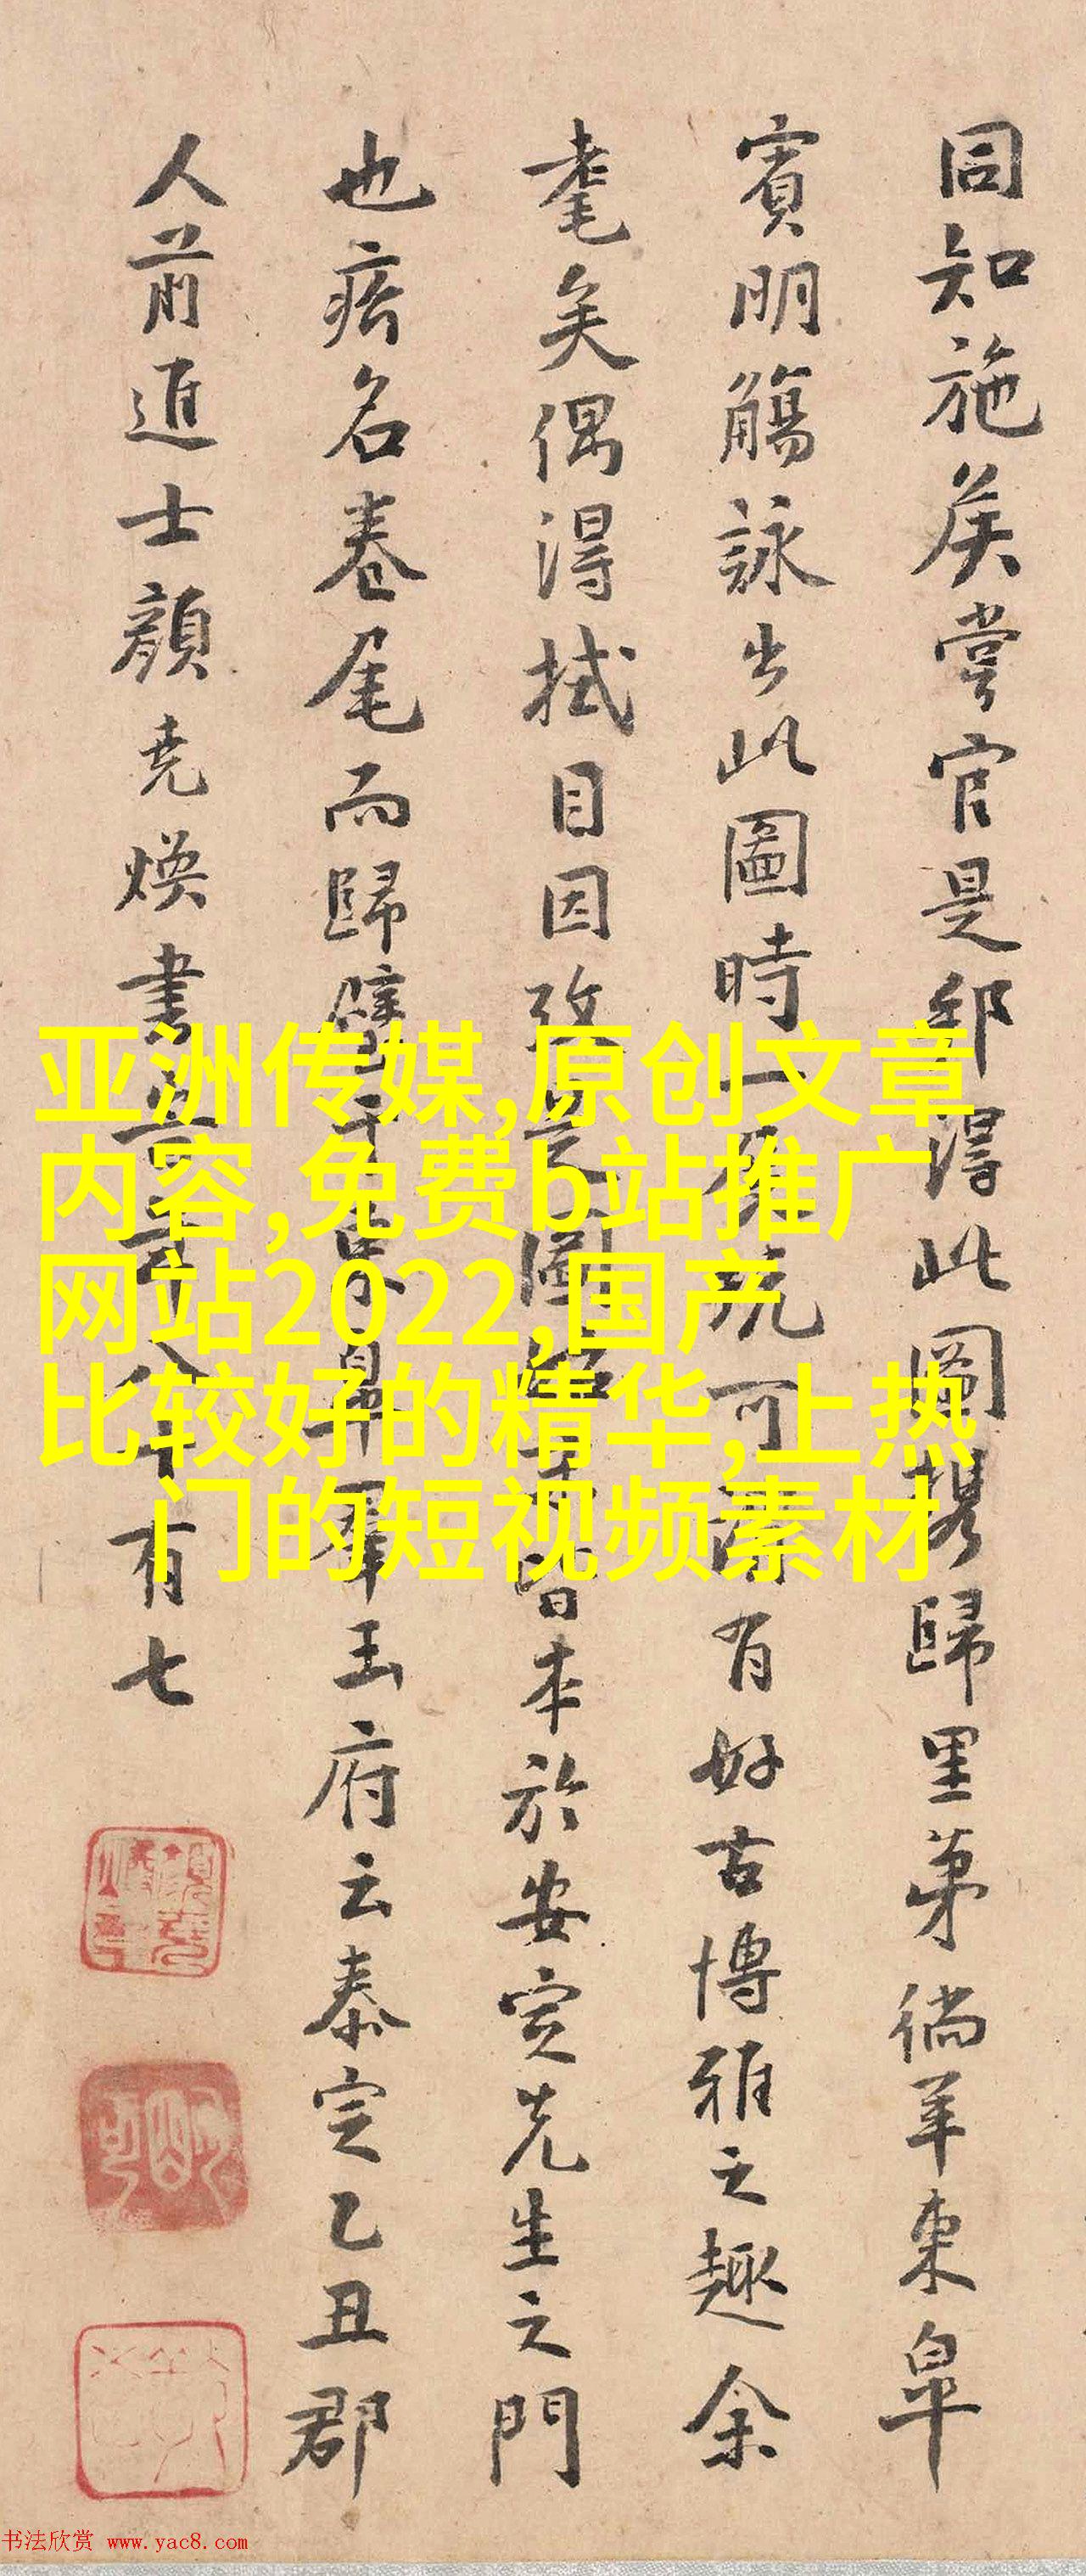 同知施侯嘗官是邦得此圖攜歸里第徜羊東皋
賓明觴詠出此圖時一 玩可 有好古博雅之趣余
耄矣偶得拭目因攷是圖 皆本於安定先生之門
也瘖名卷尾而歸 群玉府云泰定乙丑郡
人前進士顏堯煥書 年八十有七
亚洲传媒,原创文章
内容,免费b站推广
网站2022,国产
比较好的精华,上热
门的短视频素材
书法欣赏 www.yac8.com